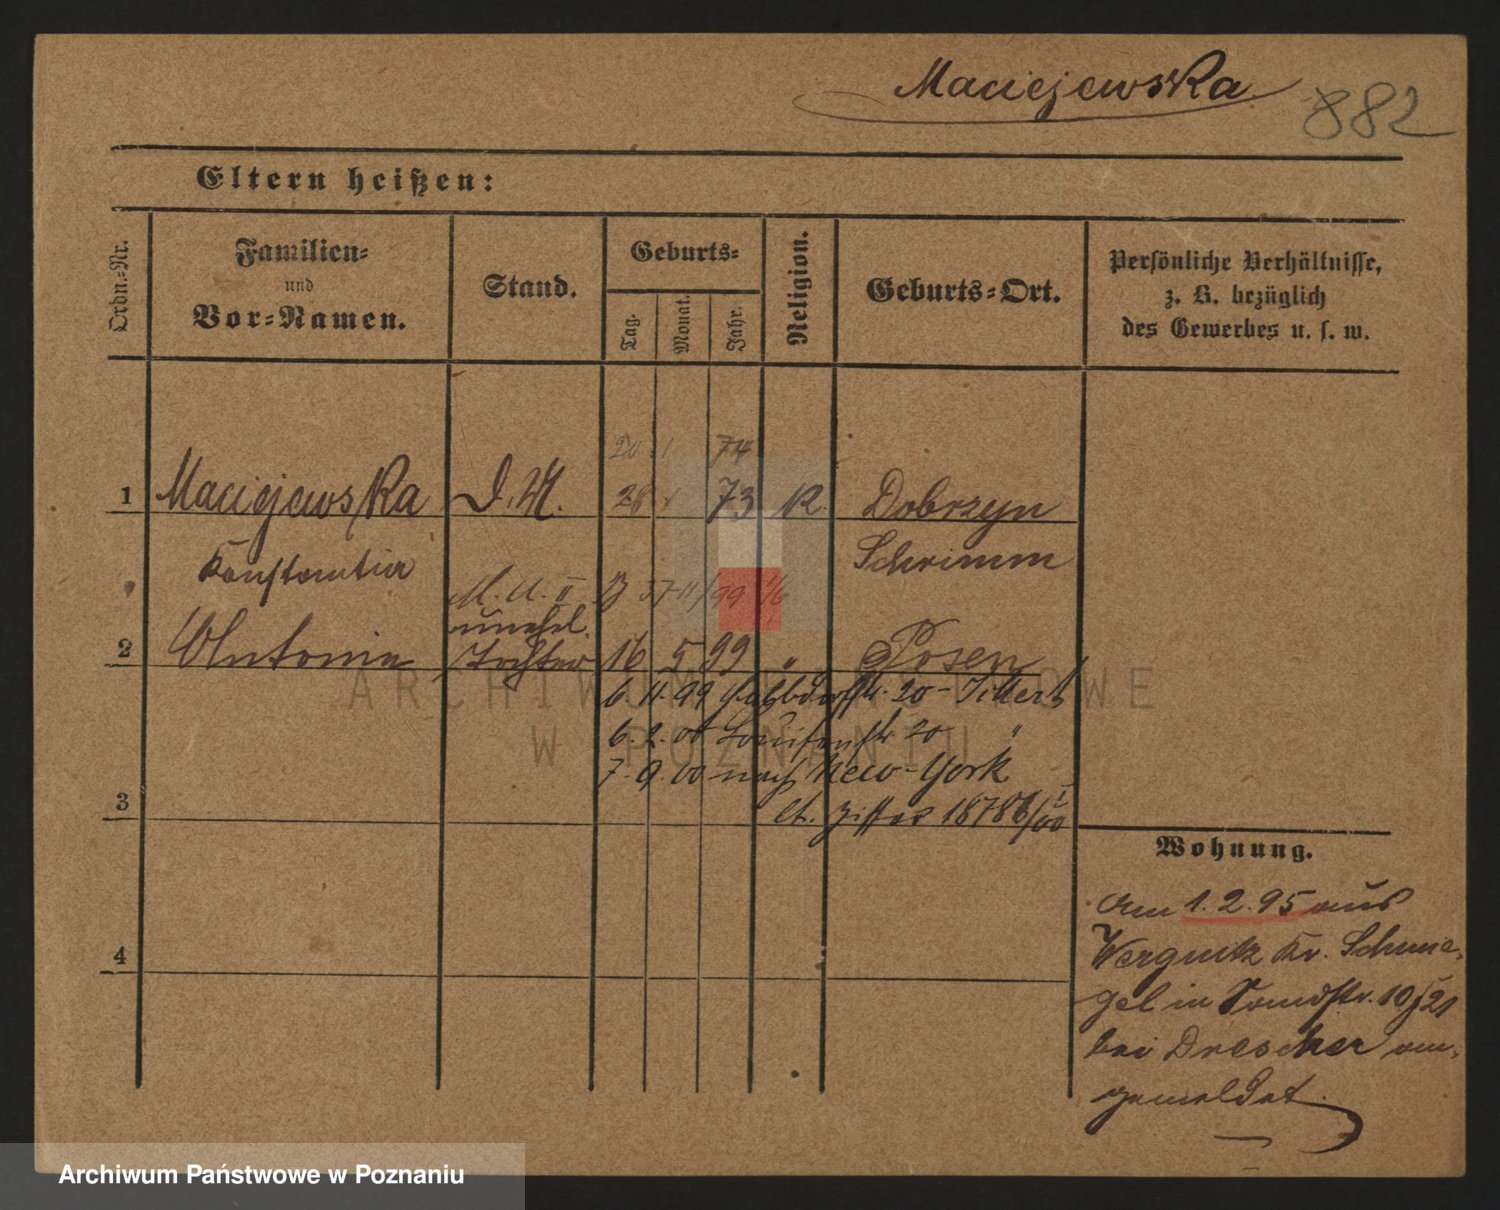 Maciejewska 882
Eltern heißen:
Ordn.-Nr.
Familien-
und
Vor-Namen.
Stand.
Geburts-
Tag.
Monat.
Jahr.
Religion.
Geburts-Ort.
Persönliche Verhältnisse,
z. B. bezüglich
des Gewerbes u. s. w.
20 1 74
1 Maciejewska D. M. 28 1 73 K. Dobrzyn
Konstantia Schrimm
unehel.
2 Antonia Tochter 16 5 99 " Posen
6. 11. 99 20 -
6. 2. 00 Louisenstr 20 "
7. 9. 00 nach New-York
3 lt. Ziffer 18786/00
4
Wohnung.
Am 1. 2. 95 aus
Kr. Schmie-
gel in 19/21
bei Drescher an-
gemeldet.
ARCHIWUM PAŃSTWOWE
W POZNANIU
Archiwum Państwowe w Poznaniu